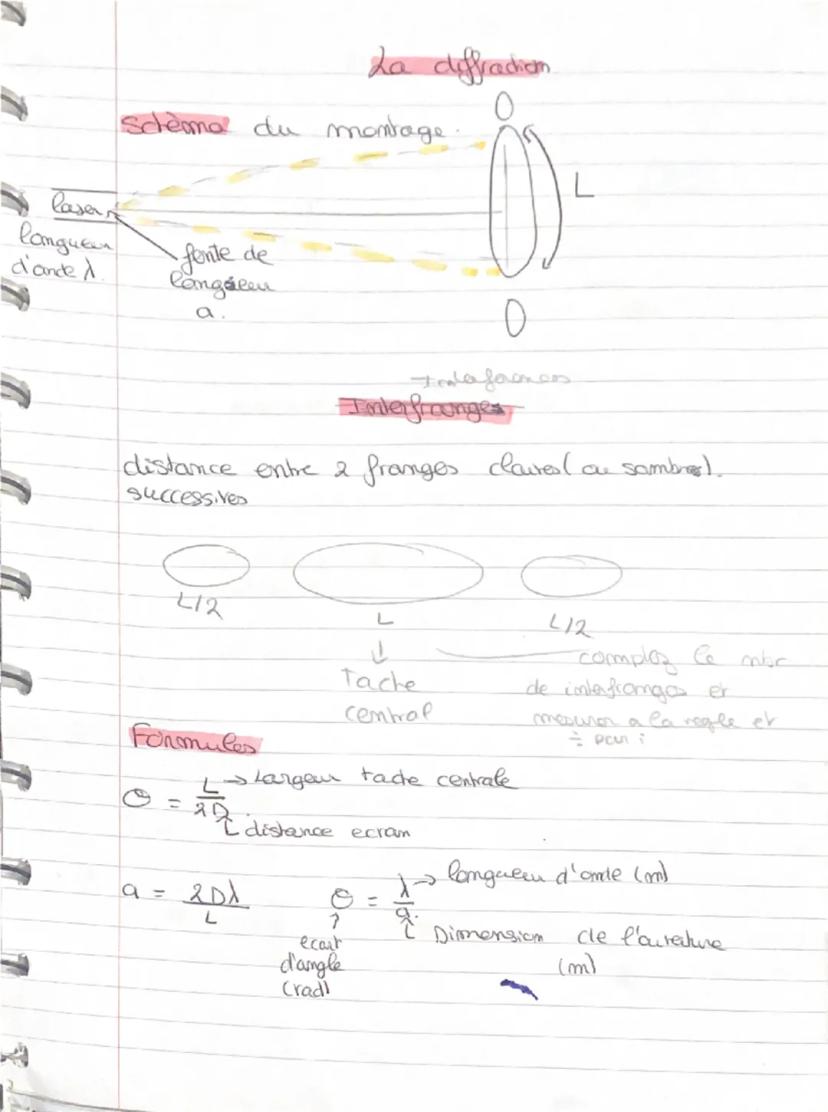 La diffraction
Schéma du montage.
L
laser
longueur
d'onde λ.
fente de
longueur
a.
Interferences
Interfranges
distance entre 2 franges claires (ou sombres).
successives
L/2
L
L/2
↓
tache
central
compter le nbr
de interfranges et
mesurer a la regle et
÷ par i
Formules
θ = L/2D
→ Largeur tache centrale
distance ecran
a = 2Dλ/L
θ = λ/a
→ longueur d'onde (m)
Dimension de l'ouverture
(m)
↑
ecart
d'angle
(rad)